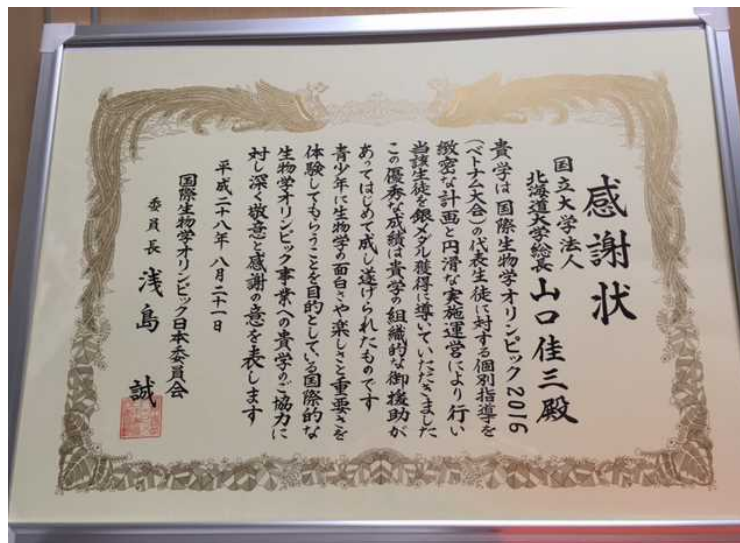 感謝状
国立大学法人
北海道大学総長 山口佳三殿
貴学は国際生物学オリンピック2016
(ベトナム大会)の代表生徒に対する個別指導を
緻密な計画と円滑な実施運営により行い
当該生徒を銀メダル獲得に導いていただきました
この優秀な成績は貴学の組織的な御援助が
あってはじめて成し遂げられたものです
青少年に生物学の面白さや楽しさと重要さを
体験してもらうことを目的としている国際的な
生物学オリンピック事業への貴学のご協力に
対し深く敬意と感謝の意を表します
平成二十八年 八月二十一日
国際生物学オリンピック日本委員会
委員長 浅島 誠